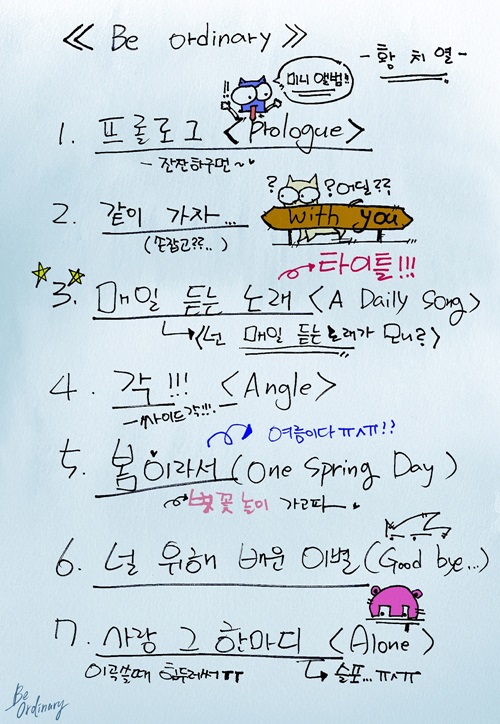 ≪ Be ordinary ≫
- 황 치 열 -
!! 미니 앨범!!
1. 프롤로그 <Prologue>
- 잔잔하구먼~
? ?어딜??
2. 같이 가자... with you
(손잡고??..)
타이틀!!!
3. 매일 듣는 노래 <A Daily Song>
<넌 매일 듣는 노래가 모니?>
4. 각 !!! <Angle>
-싸이드각!!!.-
여름이다ㅠㅅㅠ!?
5. 봄이라서 (One Spring Day)
벚꽃놀이 가고파~
6. 널 위해 배운 이별 (Good bye...)
7. 사랑 그 한마디 <Alone>
이곡쓸때 힘두러써ㅠ 슬포...ㅠㅅㅠ
Be Ordinary